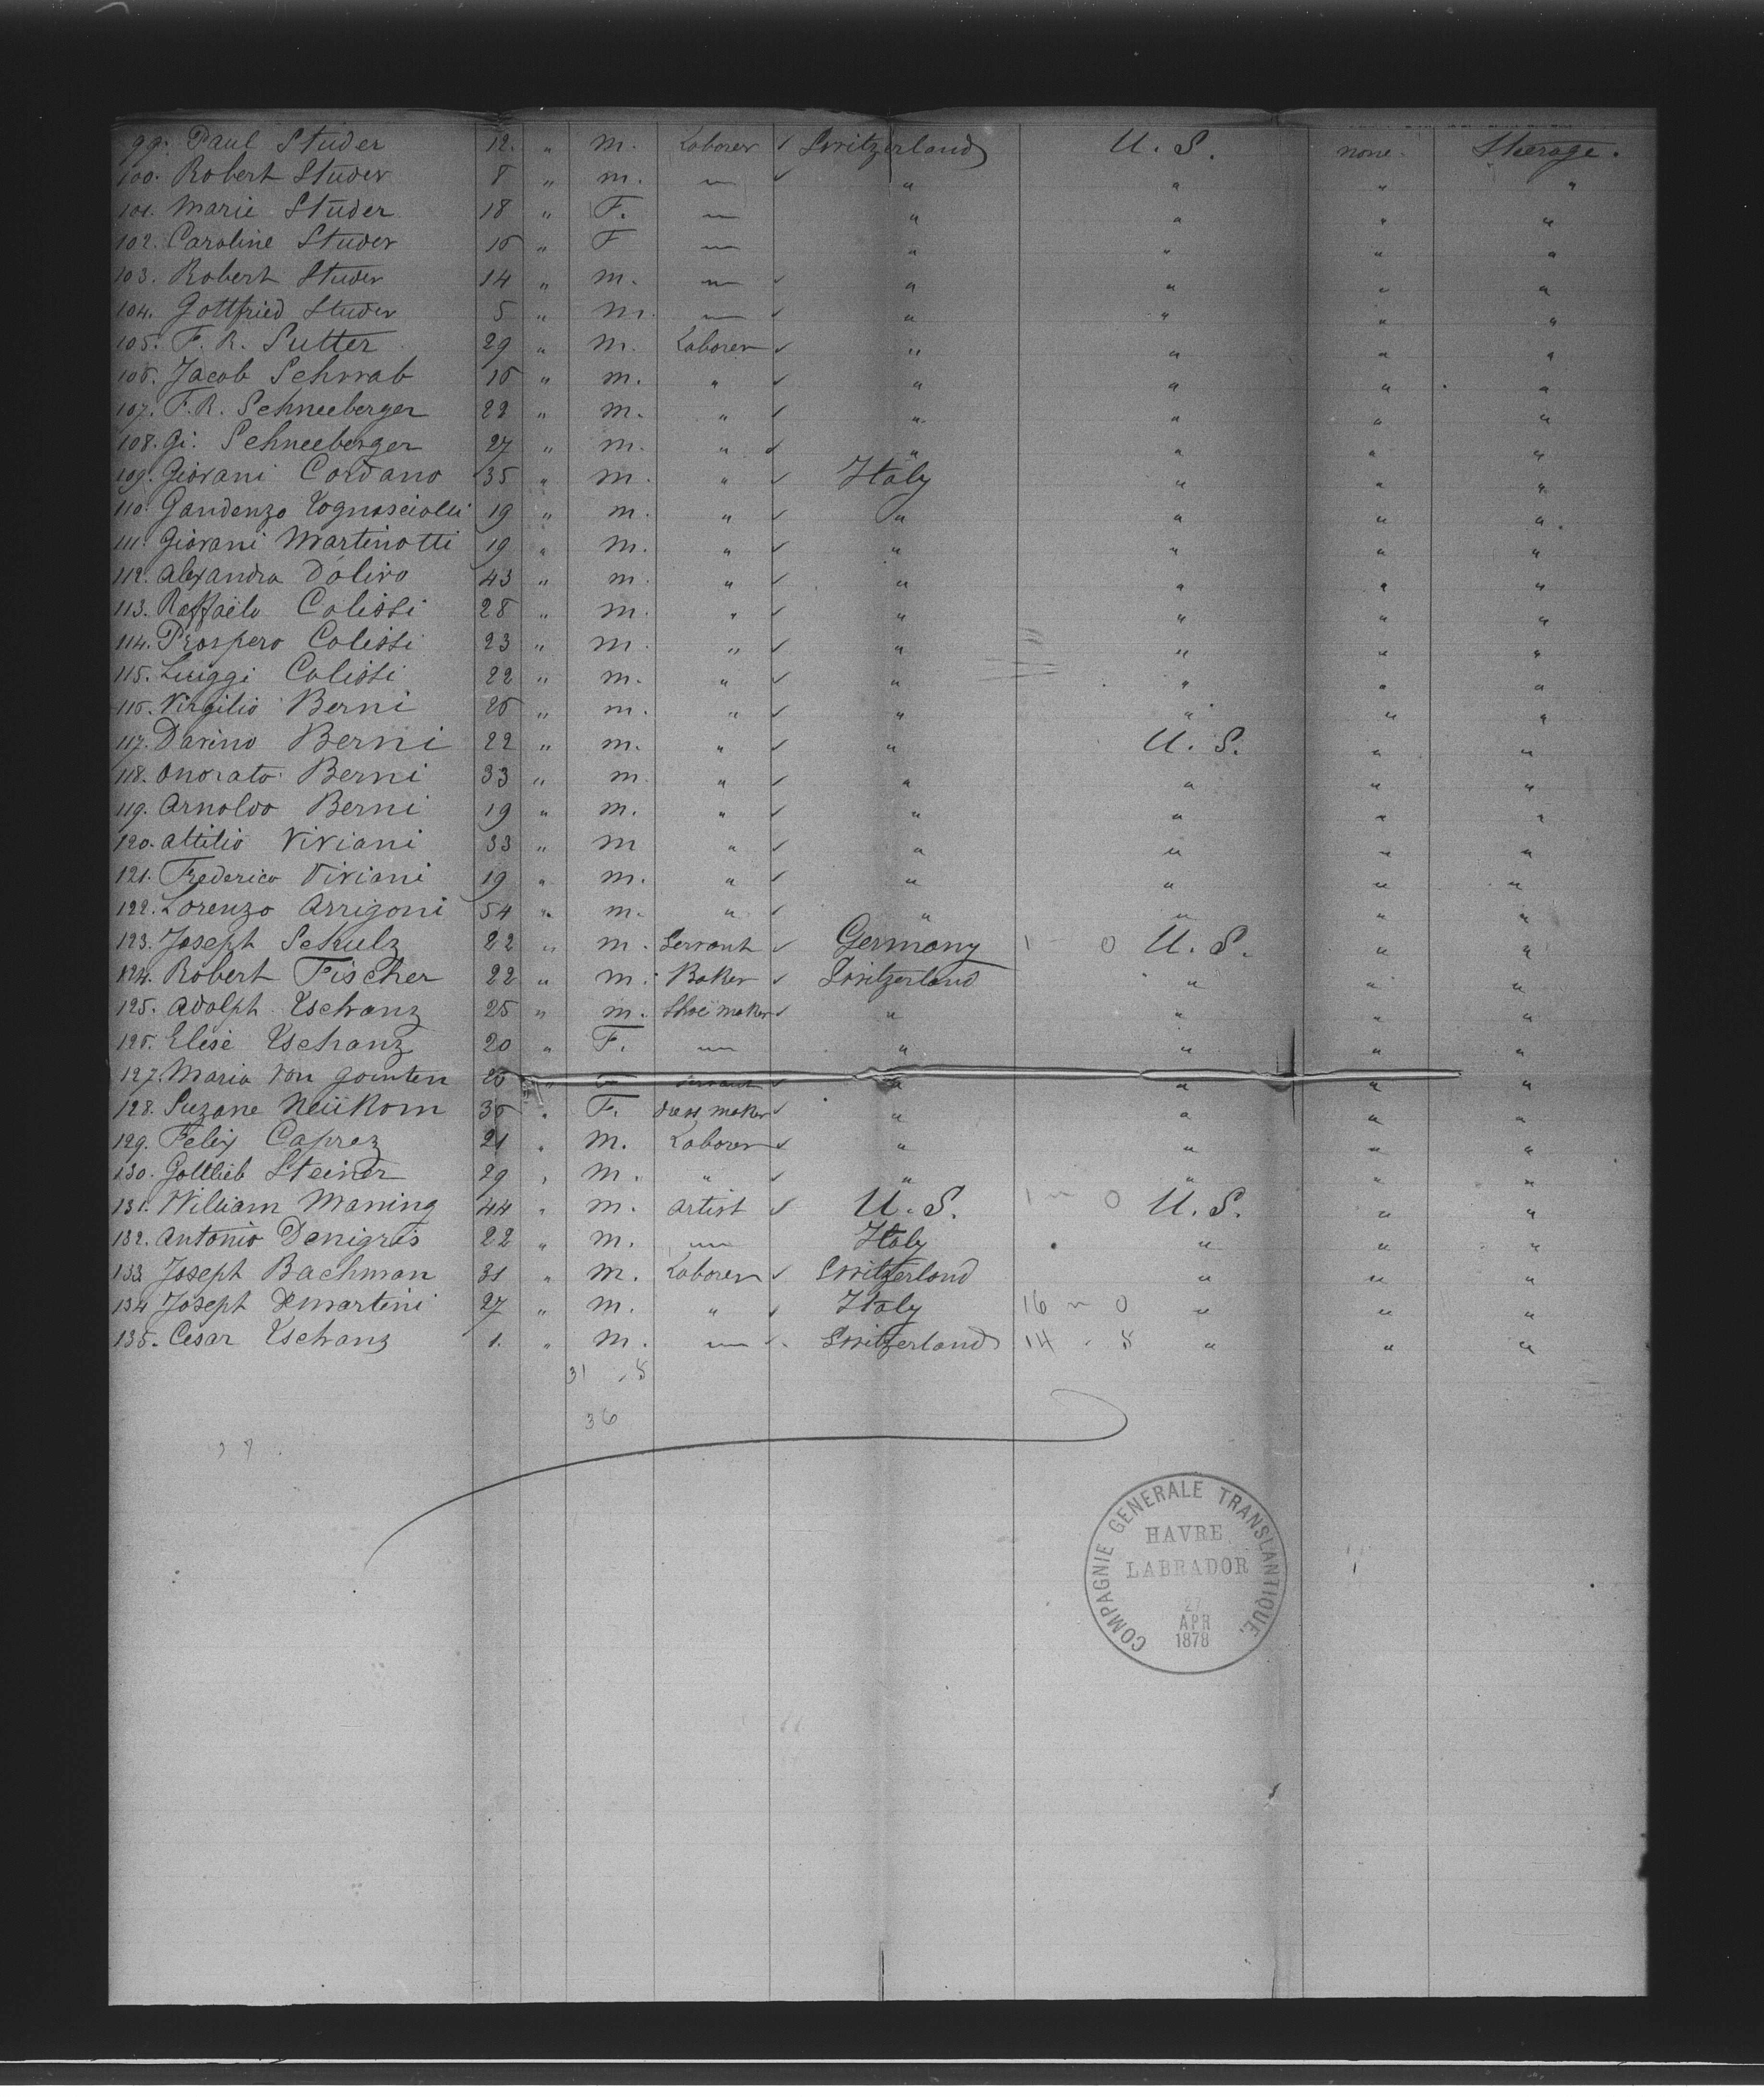 99. Paul Studer 12. " m. Laborer ✓ Switzerland U. S. none. Sterage.
100. Robert Studer 8 " m. — ✓ " " " "
101. Marie Studer 18 " F. — " " " "
102. Caroline Studer 16 " F — " " " "
103. Robert Studer 14 " m. — ✓ " " " "
104. Gottfried Studer 5 " m. — ✓ " " " "
105. F. R. Sutter 29 " m. Laborer ✓ " " " "
106. Jacob Schwab 16 " m. " ✓ " " " "
107. F. R. Schneeberger 22 " m. " ✓ " " " "
108. Gi. Schneeberger 27 " m. " ✓ " " " "
109. Giovani Cordano 35 " m. " ✓ Italy " " "
110. Gaudenzo 19 " m. " ✓ " " " "
111. Giovani Martinotti 19 " m. " ✓ " " " "
112. Alexandra Dolivo 43 " m. " ✓ " " " "
113. Raffaëlo Colissi 28 " m. " ✓ " " " "
114. Prospero Colissi 23 " m. " ✓ " " " "
115. Luiggi Colissi 22 " m. " ✓ " " " "
116. Virgilio Berni 26 " m. " ✓ " " " "
117. Davino Berni 22 " m. " ✓ " U. S. " "
118. Onorato Berni 33 " m. " ✓ " " " "
119. Arnoldo Berni 19 " m. " ✓ " " " "
120. Attilio Viviani 33 " m " ✓ " " " "
121. Frederico Viviani 19 " m. " ✓ " " " "
122. Lorenzo Arrigoni 54 " m. " ✓ " " " "
123. Joseph Sckulz 22 " m. Servant ✓ Germany 1 - 0 U. S. " "
124. Robert Fischer 22 " m. Baker ✓ Switzerland " " "
125. Adolph Tschanz 25 " m. Shoe maker ✓ " " " "
126. Elise Tschanz 20 " F. — " " " "
127. Maria Von Gounten 26 " F Servant ✓ " " " "
128. Suzane Neükom 36 " F. dress maker ✓ " " " "
129. Felix Caprez 21 " m. Laborer ✓ " " " "
130. Gottlieb Steiner 29 " m. " ✓ " " " "
131. William Maning 44 " m. Artist ✓ U. S. 1 - 0 U. S. " "
132. Antonio Denigris 22 " m. — Italy " " "
133. Joseph Bachman 31 " m. Laborer ✓ Switzerland " " "
134. Joseph Demartini 27 " m. " ✓ Italy 16 - 0 " " "
135. Cesar Tschanz 1. " m. — Switzerland 14 - 5 " " "
31 . 5
36
COMPAGNIE GENERALE TRANSLANTIQUE.
HAVRE
LABRADOR
27
APR
1878